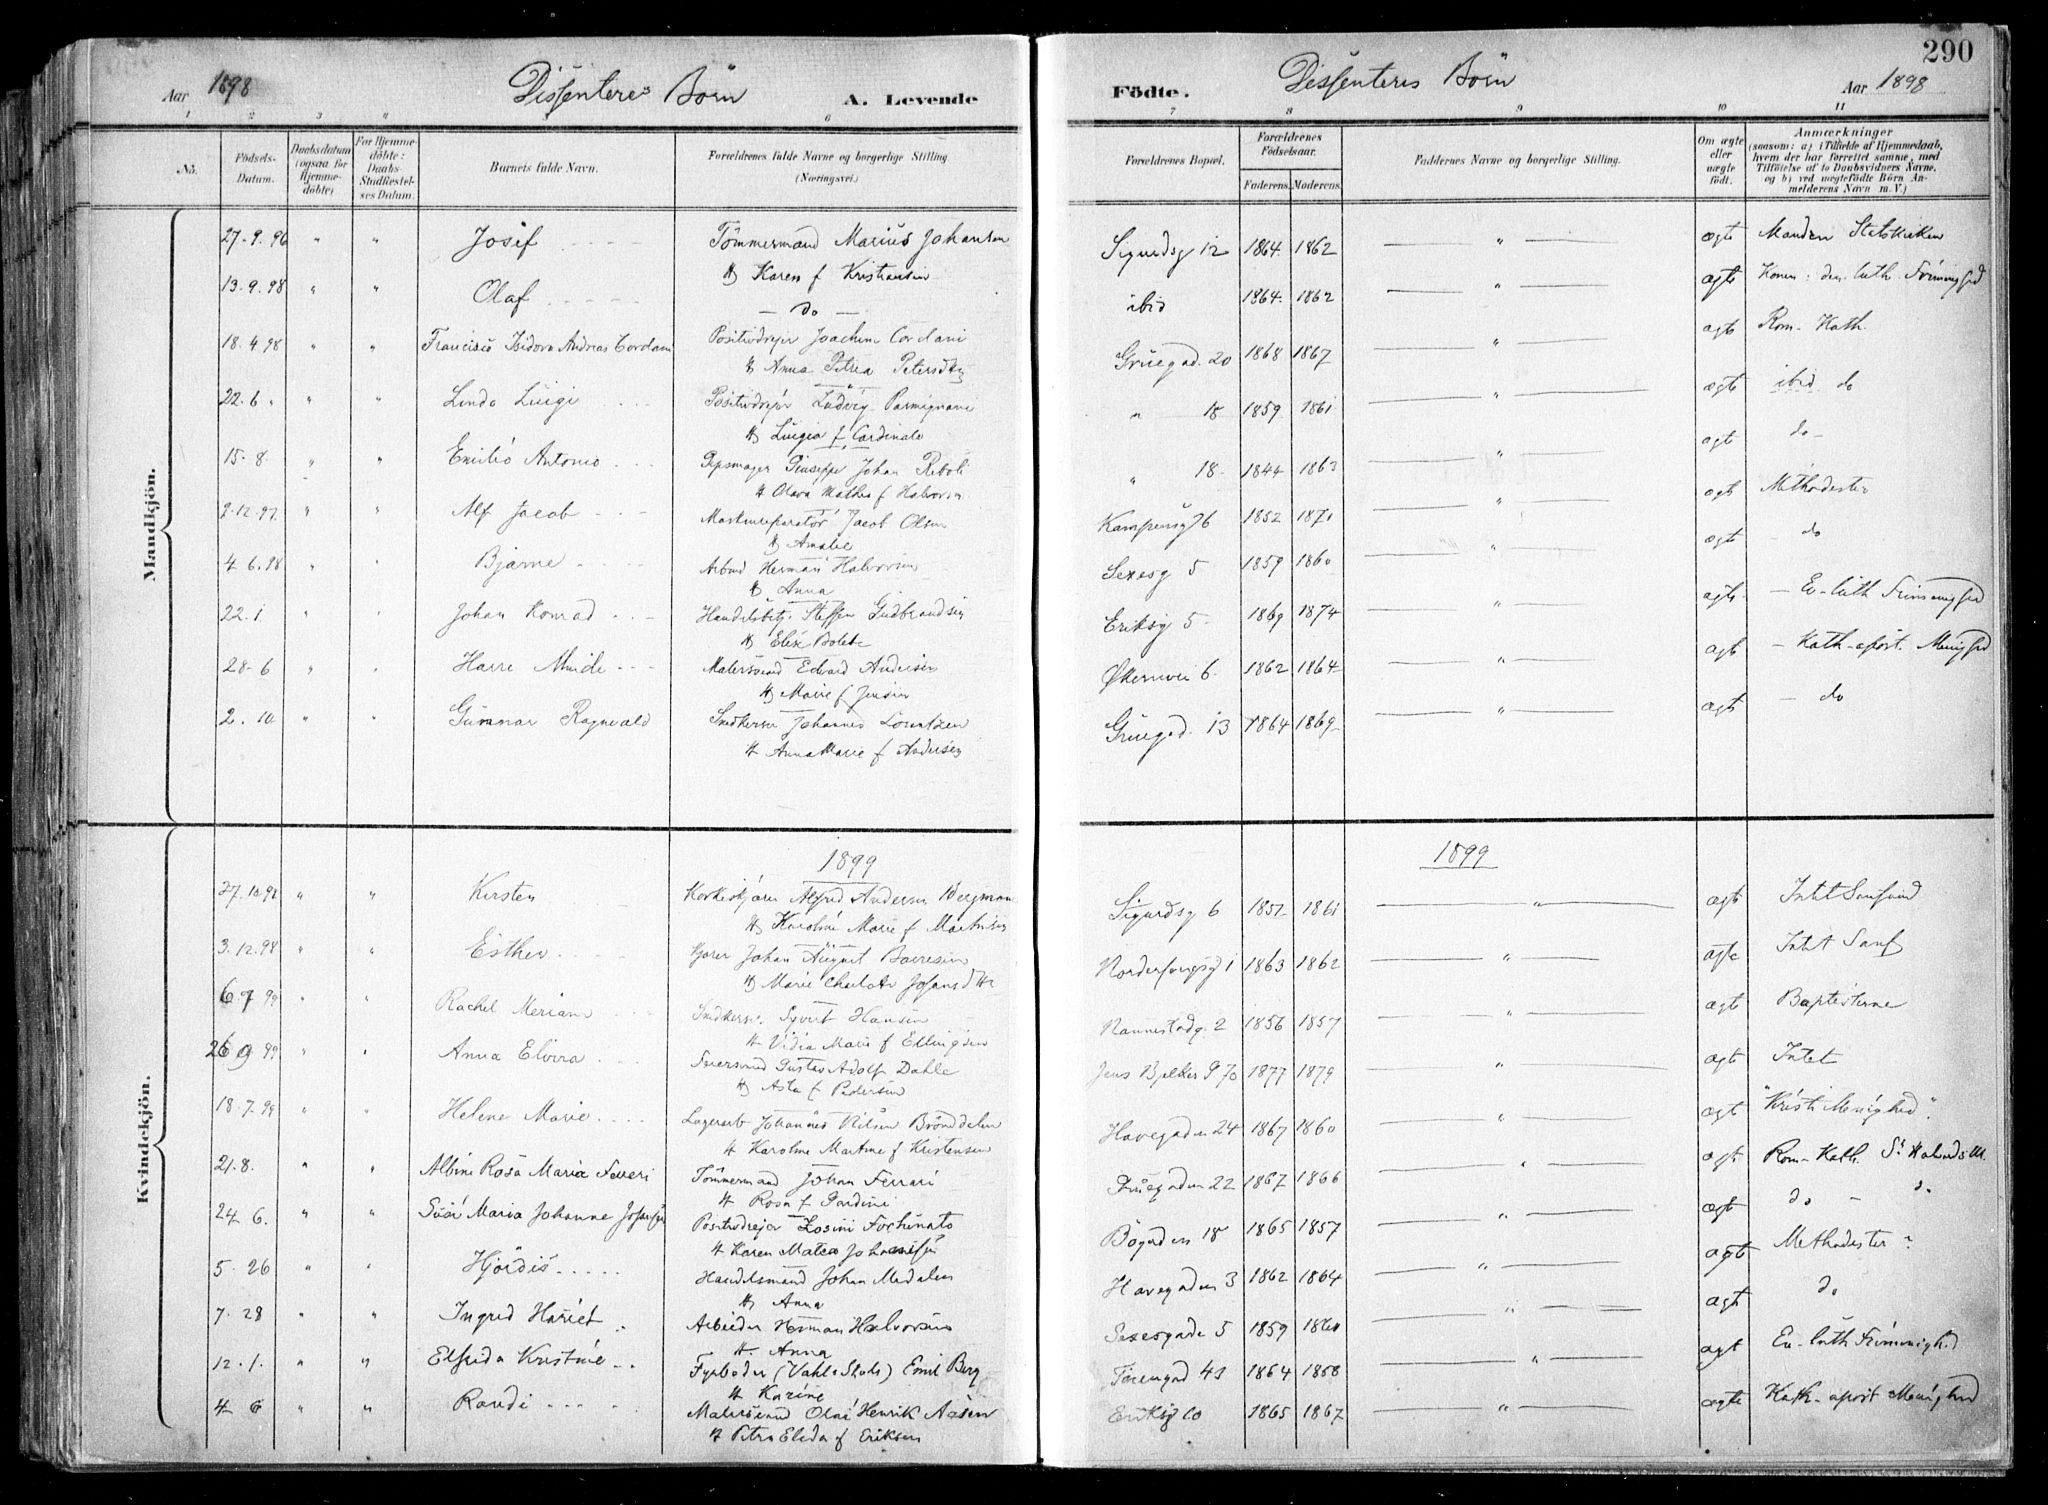 290
Aar 1898 Dissenteres Börn A. Levende
Födte. Dissenteres Börn Aar 1898
1 2 3 4 5 6
7 8 9 10 11
No.
Födsels-Datum.
Daabsdatum (ogsaa for Hjemme-döbte)
For Hjemme-döbte: Daabs-Stadfæstel-ses Datum.
Barnets fulde Navn.
Forældrenes fulde Navne og borgerlige Stilling. (Næringsvei.)
Forældrenes Bopæl.
Forældrenes Födselsaar.
Faderens. Moderens.
Faddernes Navne og borgerlige Stilling.
Om ægte eller uægte födt.
Anmærkninger
(saasom: a) i Tilfælde af Hjemmedaab, hvem der har forrettet samme, med Tilföielse af to Daabsvidners Navne, og b) ved uægtefödte Börn An-melderens Navn m. V.)
Mandkjön.
27-9.96 " " Josef Tömmermand Marius Johansen Sigurdsg 12 1864 1862 " ægte Manden Statskirken
H Karen f Kristiansen
13.9.98 " " Olaf - do - ibid 1864 1862 " ægte Konen: den luth. Frimenighed
18.4.98 " " Francisco Isidoro Andreas Cordani Positivdreier Joachim Cordani Grüegad. 20 1868 1867 " ægte Rom-Kath.
H Anna Petrea Petersdtr
22.6. " " Lindo Luigi Positivdreier Ludvig Parmignani " 18 1859 1861 " ægte ibid do
H Luigia f Cardinale
15.8. " " Emilio Antonio Gipsmager Giuseppe Johan Riboli " 18 1844 1863 " ægte do
H Olava Mathea f Halvorsen
2.12.97. " " Alf Jacob Maskinreparatör Jacob Olsen Kampensg 76 1852 1871 " ægte Methodister
H Amalie
4 6.98 " " Bjarne Arbmd Herman Halvorsen Sexesg 5 1859 1860 " ægte do
H Anna
22.1. " " Johan Konrad Handelsbetj. Steffen Gudbrandsen Eriksg 5 1869 1874 " ægte Ev-luth Frimenighed
H Elise Bolette
28-6 " " Harre Malersvend Edvard Andersen Økernvei 6 1862 1864 " ægte Kath-apost. Menighed
H Marie f Jensen
2. 10 " " Gunnar Ragnvald Snedkersv Johannes Lorentzen Grüegad. 13 1864 1869 " ægte do
H Anna Marie f Andersen
Kvindekjön.
1899
1899
27.10.98 " " Kirsten Korkeskjærer Alfred Andersen Bergman Sigurdsg 6 1857 1861 " ægte Intet Samfund
H Karoline Marie f Martinsen
3.12.98 " " Esther Kjører Johan August Boresen 1 1863 1862 " ægte Intet Samf
H Marie Charlotte Johansdtr
6.7 99 " " Rachel Meriam Snedkersv. Syvert Hansen Rannestadg. 2 1856 1857 " ægte Baptisterne
H Vidia Marie f Ellingsen
26 9 99 " " Anna Elvira Sversvend Gustav Adolf Dahle Jens Bjelkes g 70 1877 1879 " ægte Intet
H Asta f Pedersen
18.7.99 " " Helene Marie Lagerarb Johannes Nilsen Brönddalen Havegaden 24 1867 1860 " ægte "Kristi Menighed"
H Karoline Martine f Kristensen
21.8. " " Albine Rosa Maria Ferreri Tömmermand Johan Ferrari Grüegaden 22 1867 1866 " ægte Rom-Kath. St Halvards M.
H Rosa f Gardini
24 6. " " Susi Maria Johanne Josefin Positivdreier Zosimi Fochinato Bögaden 18 1865 1857 " ægte do - do
H Karen Matea Johannesen
5. 26 " " Hjördis Handelsmand Johan Medalen Havegaden 3 1862 1864 " ægte Methodister
H Anna
7. 28 " " Ingrid Hariet Arbeider Herman Halvorsen Sexesgade 5 1859 1860 " ægte do
H. Anna
12.1. " " Elfrida Kristine Fyrböder (Vahls Skole) Emil Berg 43 1864 1858 " ægte Ev-luth Frimenighed
H Karine
4 6 " " Randi Malersvend Olai Henrik Aasen Eriksg 10 1865 1867 " ægte Kath-apost Menighed
H Petra Elida f Eriksen